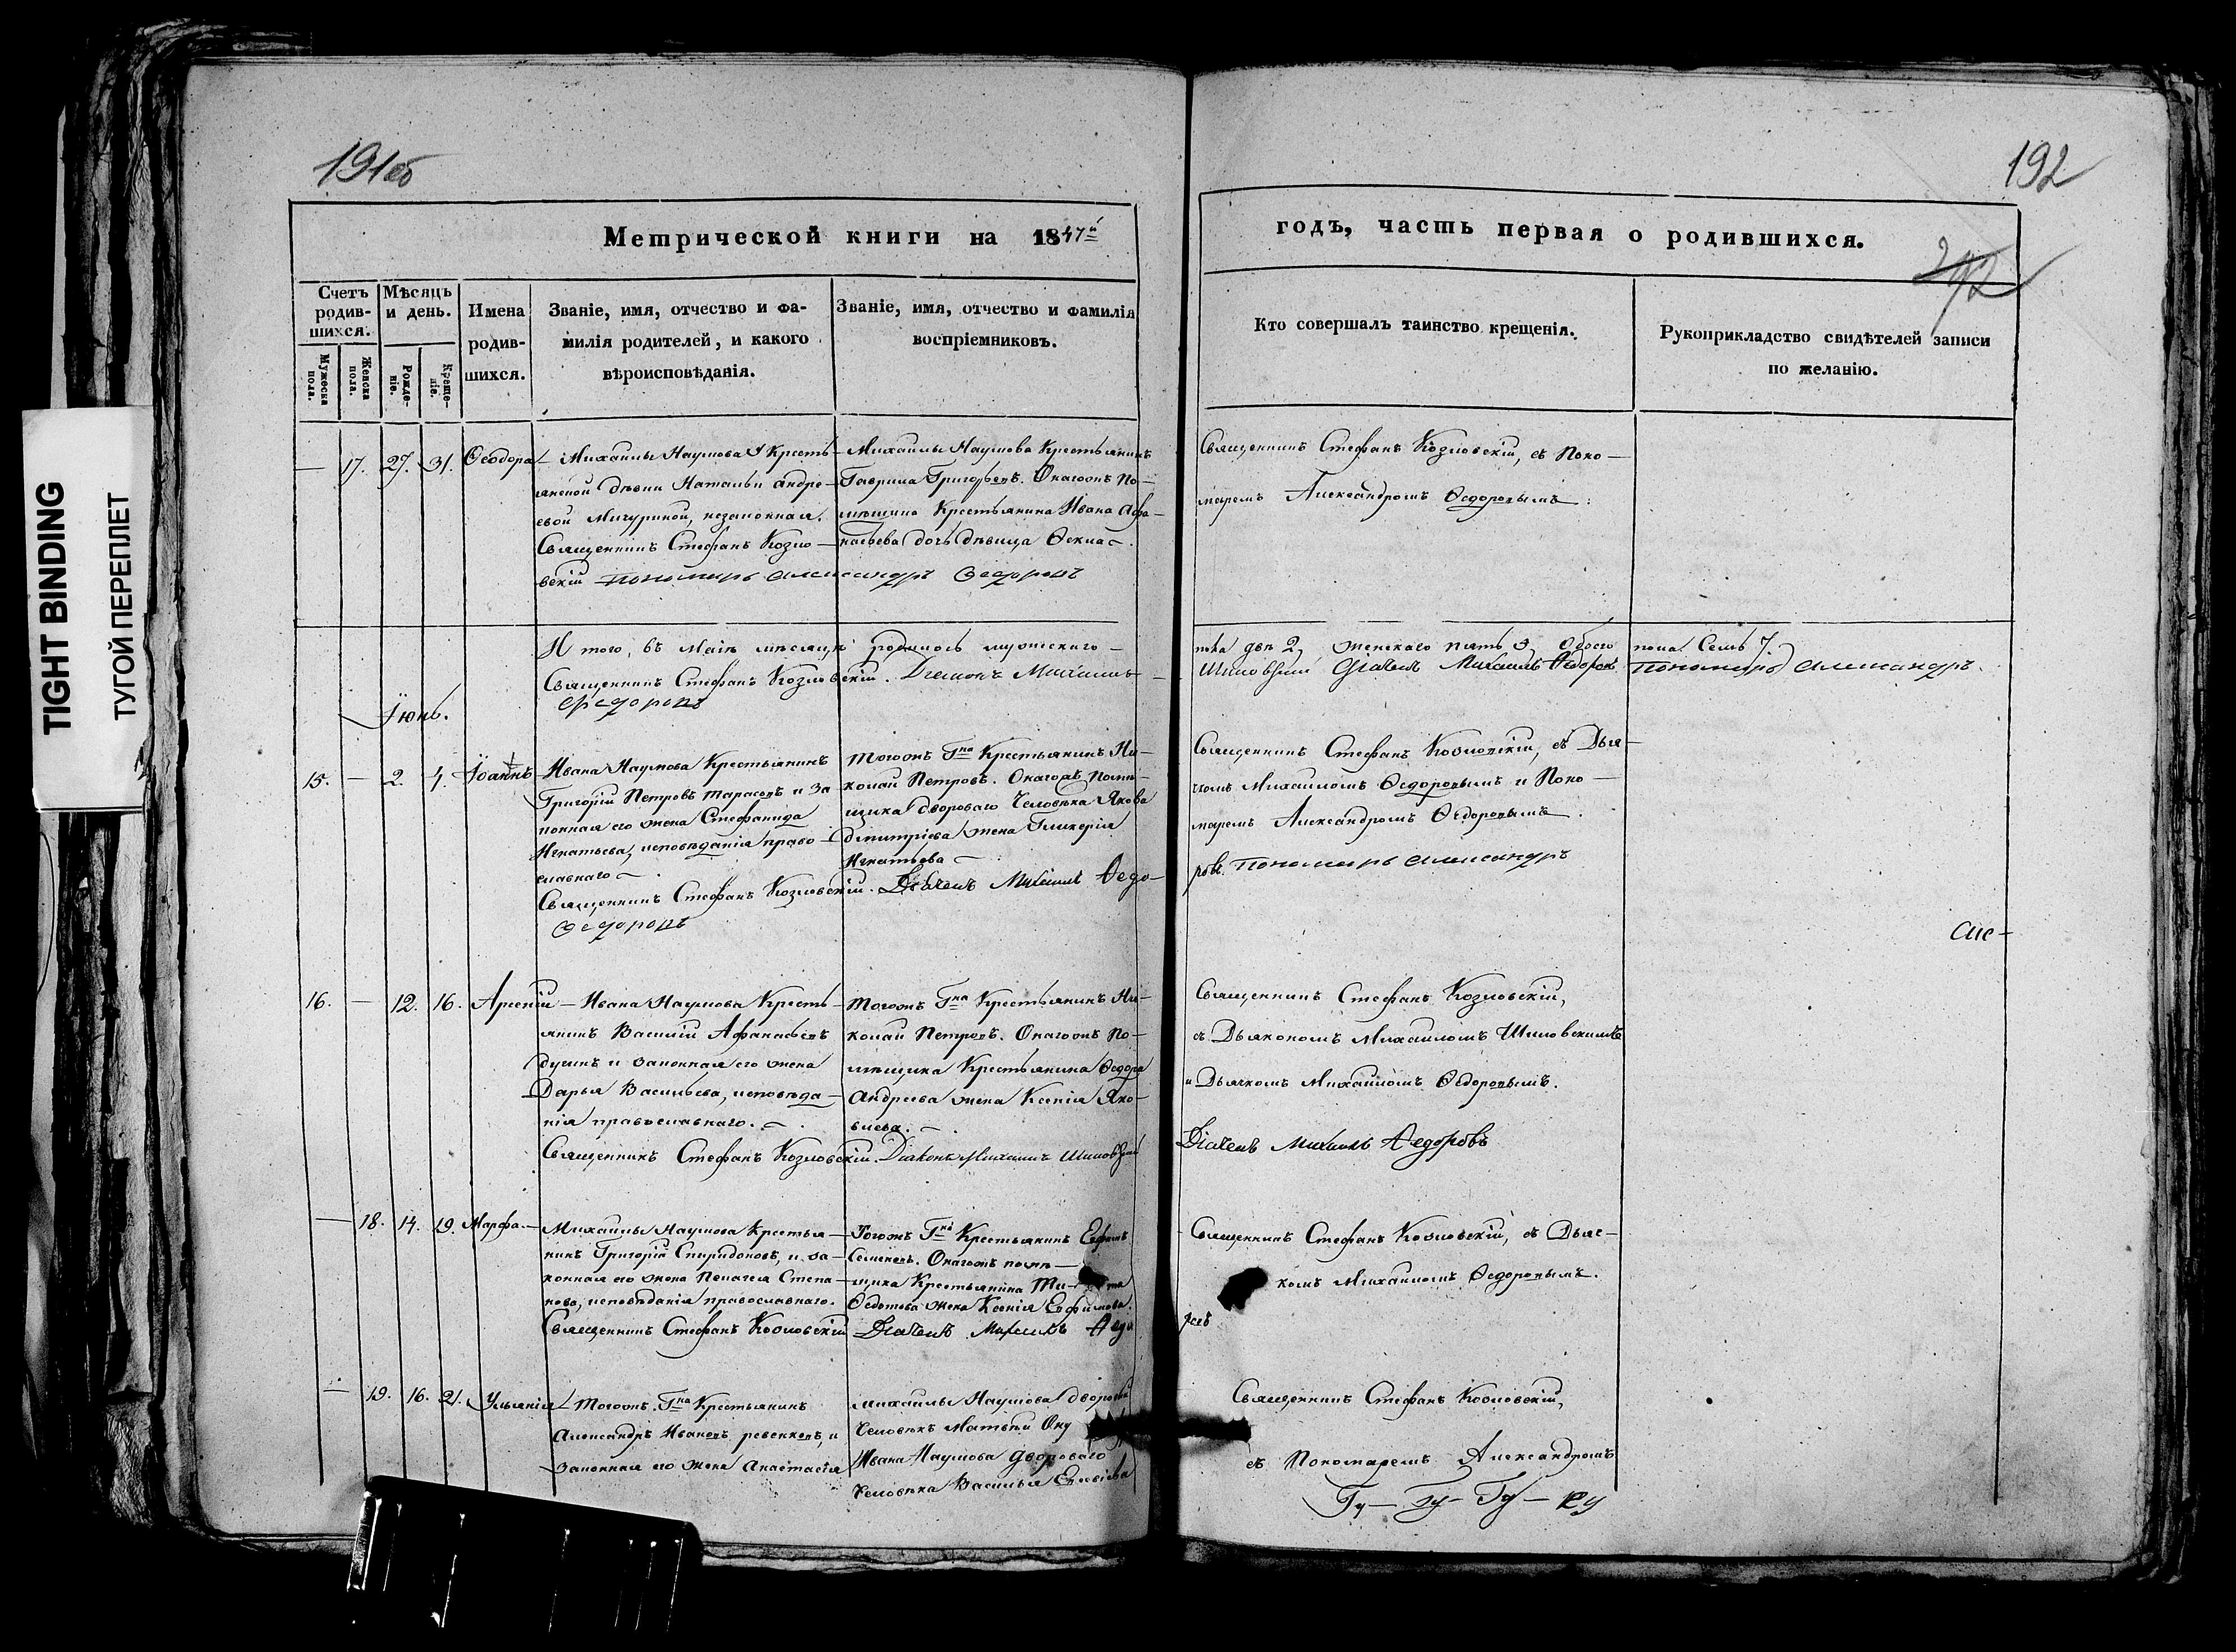 TIGHT BINDING
ТУГОЙ ПЕРЕПЛЕТ
191об
192
Метрической книги на 1847й
годъ, часть первая о родившихся.
Счетъ родив-шихся.
Мужеска пола.
Женска пола.
Мѣсяцъ и день.
Рожде-ніе.
Креще-ніе.
Имена
родив-
шихся.
Званіе, имя, отчество и фа-
милія родителей, и какого
вѣроисповѣданія.
Званіе, имя, отчество и фамилія
воспріемниковъ.
Кто совершалъ таинство крещенія.
Рукоприкладство свидѣтелей записи
по желанію.
— 17. 27. 31. Ѳеодора
Михаилы Наумова Кресть-
янской дѣвки Натальи Андре-
евой Мичуриной, незаконная.
Священникъ Стефанъ Козло-
вскій Пономарь Александръ Ѳедоровъ
Михаилы Наумова Крестьянинъ
Гаврила Григорьевъ. Онагожъ По-
мѣщика Крестьянина Ивана Афа-
насьева дочь дѣвица Ѳекла
Священникъ Стефанъ Козловскій, съ Поно-
маремъ Александромъ Ѳедоровымъ
Итого, въ Маіѣ мѣсяцѣ родилось мужескаго
пола два 2, женскаго пять 5, обоего
пола семь 7.
Священникъ Стефанъ Козловскій. Діаконъ Михаилъ
Шиловскій Діачекъ Михаилъ Ѳедоровъ Пономарь Александръ
Ѳедоровъ
Іюнь.
15. — 2. 4. Іоаннъ
Ивана Наумова Крестьянинъ
Григорій Петровъ Тарасовъ и за
конная его жена Стефанида
Игнатьева, исповѣданія право-
славнаго
Священникъ Стефанъ Козловскій. Діачекъ Михаилъ Ѳедо-
ровъ. Пономарь Александръ
Ѳедоровъ
Тогожъ Гна Крестьянинъ Ни-
колай Петровъ. Онагожъ помѣ-
щика двороваго человѣка Якова
Дмитріева жена Гликерія
Игнатьева
Священникъ Стефанъ Козловскій, съ Дья-
чкомъ Михаиломъ Ѳедоровымъ и Поно-
маремъ Александромъ Ѳедоровымъ.
16. — 12. 16. Арсеній
Ивана Наумова Кресть-
янинъ Василій Афанасьевъ
и законная его жена
Дарья Васильева, исповѣда-
нія православнаго.
Священникъ Стефанъ Козловскій. Діаконъ Михаилъ Шиловскій
Діачекъ Михаилъ Ѳедоровъ
Тогожъ Гна Крестьянинъ Ни-
колай Петровъ. Онагожъ По-
мѣщика Крестьянина Ѳедора
Андреева жена Ксенія Яко-
влева.
Священникъ Стефанъ Козловскій,
съ Дьякономъ Михаиломъ Шиловскимъ
и Дьячкомъ Михаиломъ Ѳедоровымъ.
— 18. 14. 19. Марфа
Михаилы Наумова Крестья-
нинъ Григорій Спиридоновъ, и за-
конная его жена Пелагея Степа-
нова, исповѣданія православнаго.
Священникъ Стефанъ Козловскій Діачекъ Михаилъ Ѳедо
ровъ
Тогожъ Гна Крестьянинъ Ефимъ
Семеновъ. Онагожъ помѣ-
щика Крестьянина
Ѳедотова жена Ксенія Ефимова.
Священникъ Стефанъ Козловскій, съ Дьяч-
комъ Михаиломъ Ѳедоровымъ.
— 19. 16. 21. Ульянія
Тогожъ Гна Крестьянинъ
Александръ Ивановъ, и
законная его жена Анастасія
Михаилы Наумова дворовый
человѣкъ Матвѣй
Ивана Наумова двороваго
человѣка Василья
Священникъ Стефанъ Козловскій,
съ Пономаремъ Александромъ